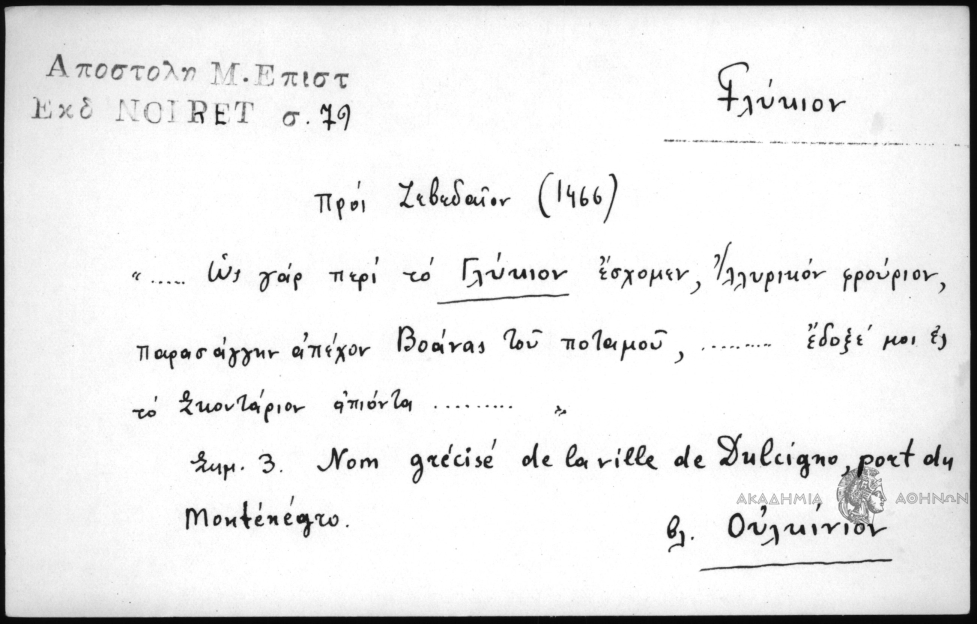 Αποστολη Μ. Επιστ
Εκδ NOIRET σ. 79
Γλύκιον
Πρός Ζεβεδαῖον (1466)
"..... Ὡς γάρ περί τό Γλύκιον ἔσχομεν, Ἰλλυρικόν φρούριον,
παρασάγγην ἀπέχον Βοάνας τοῦ ποταμοῦ, ......... ἔδοξέ μοι ἐς
τό Σκοντάριον ἀπιόντα ......... "
Σημ. 3. Nom grécisé de la ville de Dulcigno, port du
Monténégro.
ΑΚΑΔΗΜΙΑ ΑΘΗΝΩΝ
βλ. Οὐλκίνιον